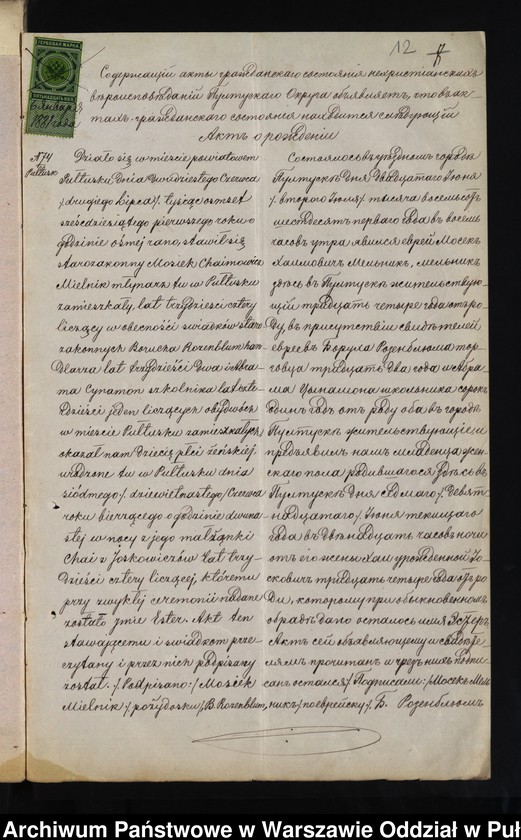 12
ГЕРБОВАЯ МАРКА
6 Января
1881 года
Содержащій акты гражданскаго состоянія нехристіанскихъ
вѣроисповѣданій Пултускаго Округа объявляетъ, что въ ак
тахъ гражданскаго состоянія находится слѣдующій
Актъ о рожденіи
N 74
Pułtusk
Działo się w mieście powiatowem
Pułtusku, dnia dwudziestego Czerwca
/drugiego Lipca/ tysiąc osmset
sześćdziesiątego pierwszego roku o
godzinie ośmej rano, stawił się
starozakonny Mosiek Chaimowicz
Mielnik młynarz tu w Pułtusku
zamieszkały, lat trzydzieści cztery
liczący w obecności świadków staro
zakonnych Borucha Rozenblum han
dlarza lat trzydzieści dwa i Abra
ma Cynamon szkolnika lat czter
dzieści jeden liczących obydwóch
w mieście Pułtusku zamieszkałych
okazał nam dziecię płci żeńskiej,
urodzone tu w Pułtusku dnia
siódmego / dziewietnastego / Czerwca
roku bierzącego o godzinie dwuna
stej w nocy z jego małżonki
Chai z Joskowiczów lat trzy
dzieści cztery liczącej, któremu
przy zwykłej ceremonii nadane
zostało imie Ester. Akt ten
stawającemu i świadkom prze
czytany i przez nich podpisany
został. / Podpisano: / Mosiek
Mielnik / po żydosku / B. Rozenblum,
Состоялось въ уѣздномъ городѣ
Пултускѣ дня двадцатаго Іюня
/ втораго Іюля / тысяча восемьсотъ
шестдесятъ перваго года въ восемь
часовъ утра явился еврей Мосекъ
Хаимовичъ Мельникъ, мельникъ
здѣсь въ Пултускѣ жительствую
щій тридцать четыре года отъ ро
ду, въ присутствіи свидѣтелей
евреевъ Боруха Розенблюма тор
говца тридцать два года и Абра
ма Цынамона школьника сорокъ
одинъ годъ отъ роду оба въ городѣ
Пултускѣ жительствующіе и
предъявилъ намъ младенца жен
скаго пола родившагося здѣсь въ
Пултускѣ дня седьмаго / девят
надцатаго / Іюня текущаго
года въ двѣнадцать часовъ ночи
отъ его жены Хаи урожденной Іо
сковичъ тридцать четыре года отъ ро
ду, которому при обыкновенномъ
обрядѣ дано осталось имя Эстеръ
Актъ сей объявляющему и свидѣте
лямъ прочитанъ и чрезъ нихъ подпи
санъ остался / Подписали: / Мосекъ Мель
никъ / по еврейску /, Б. Розенблюмъ
Archiwum Państwowe w Warszawie Oddział w Puł